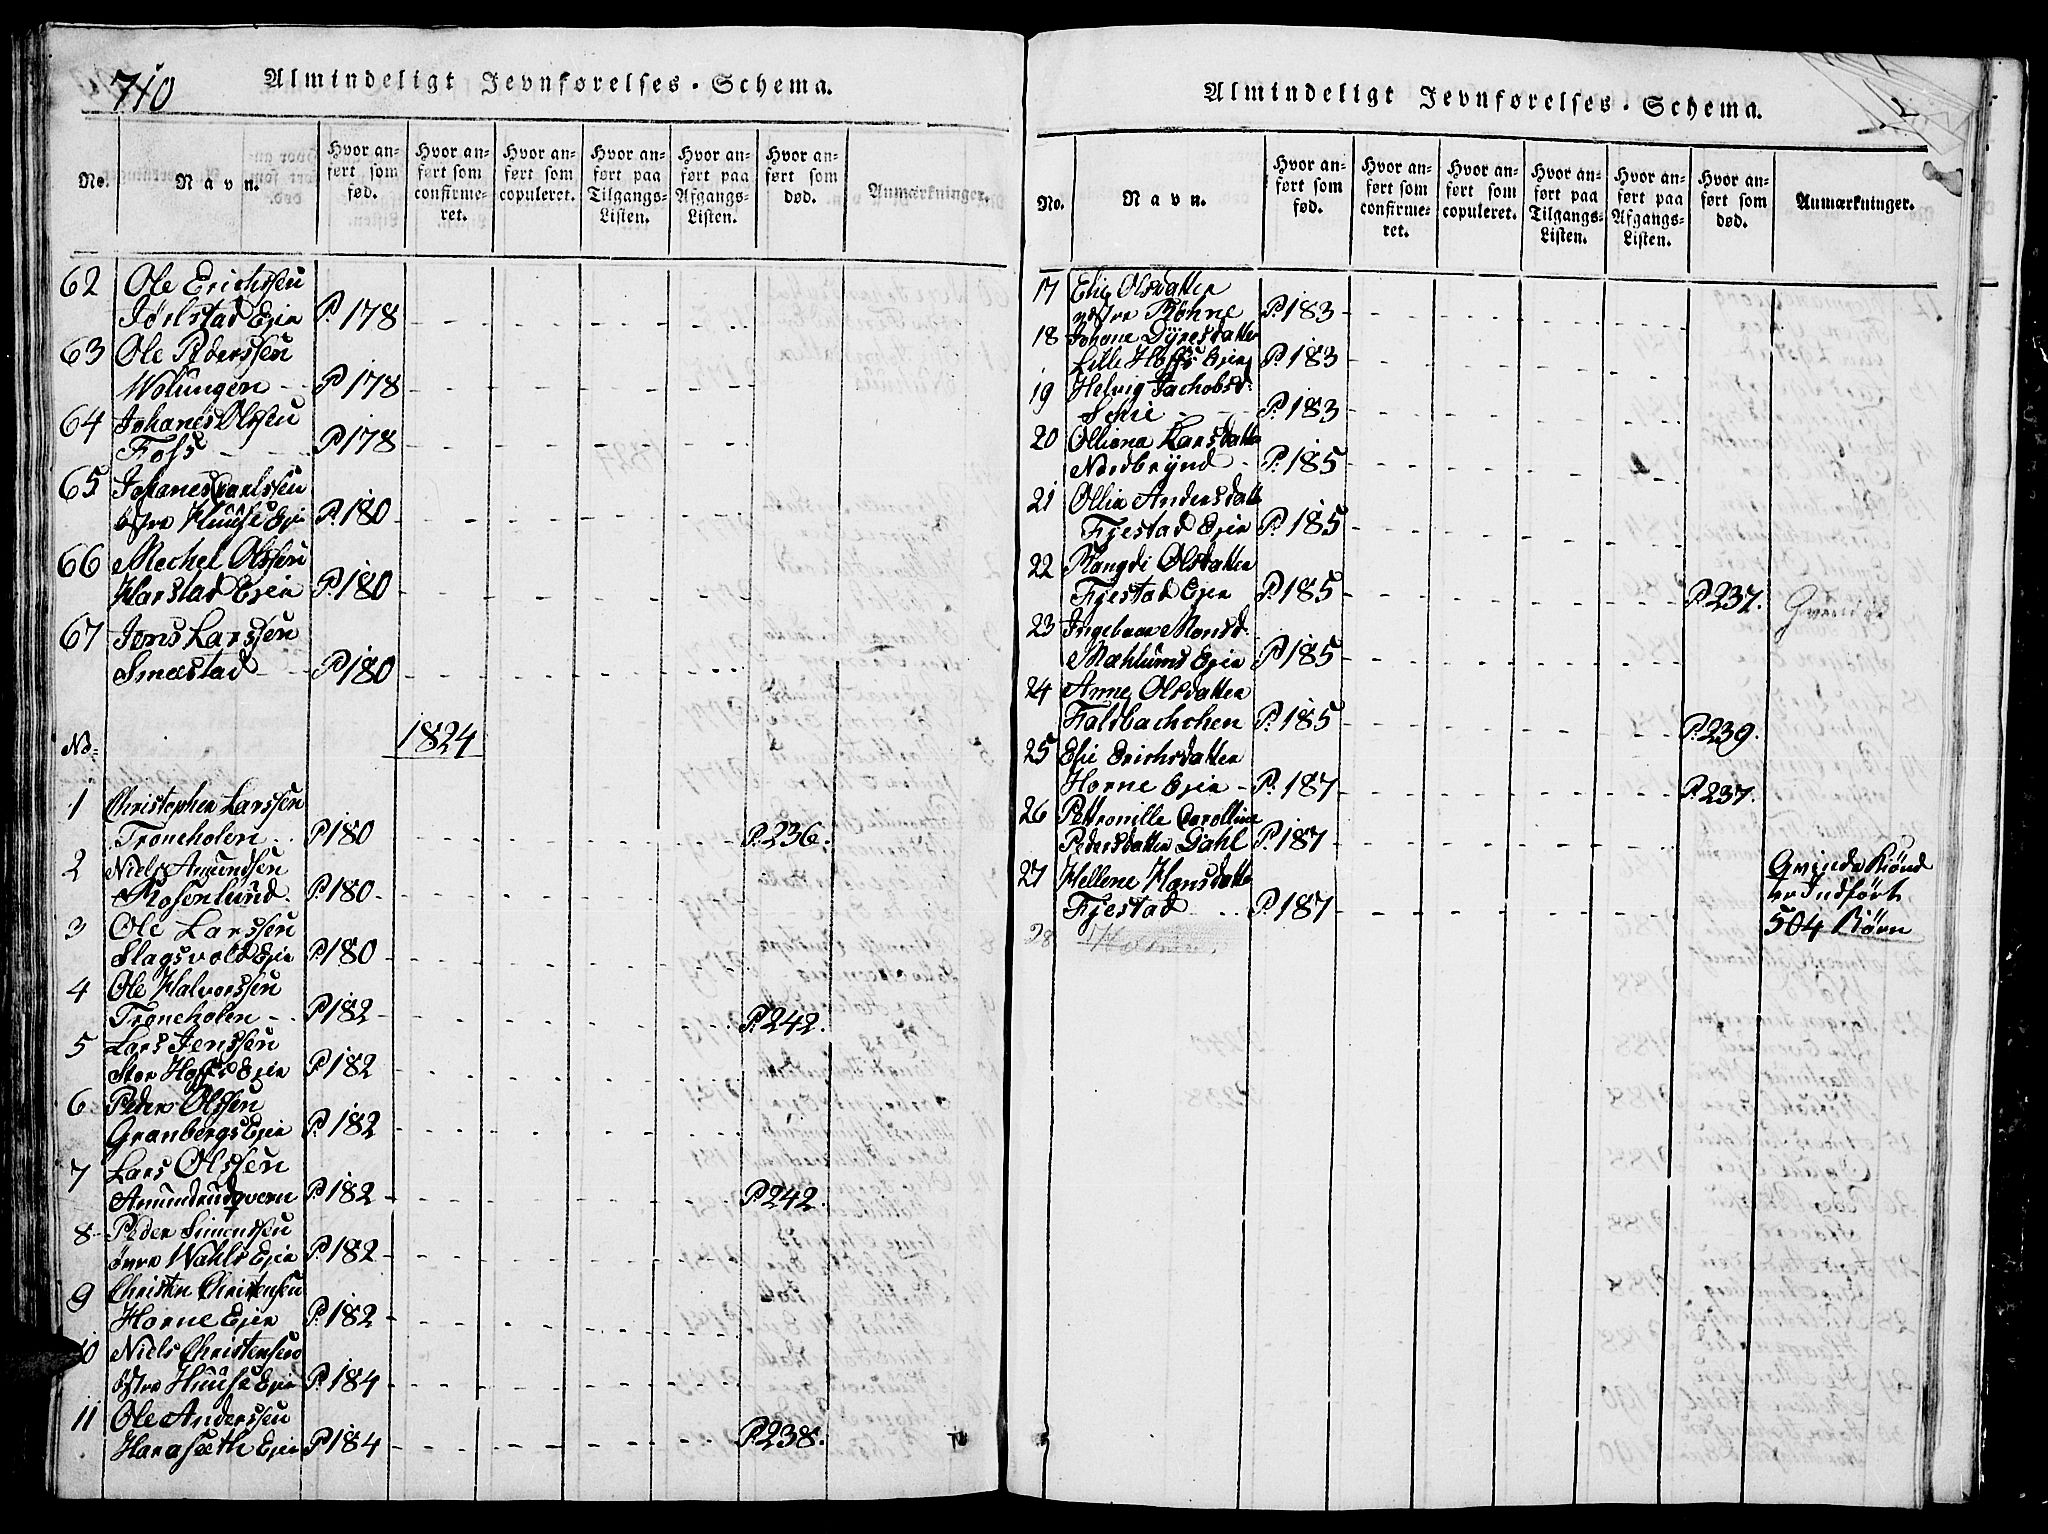 710
Almindeligt Jevnførelses-Schema.
No. Navn. Hvor anført som fød. Hvor anført som confirmeret. Hvor anført som copuleret. Hvor anført paa Tilgangs-Listen. Hvor anført paa Afgangs-Listen. Hvor anført som død. Anmærkninger.
62 Ole Erichssen
Jørlstad Ejer P. 178
63 Ole Pederssen
Wolungen P. 178
64 Johanes Olssen
Foss P. 178
65 Johanes Carlssen
østre Huuse Eje P. 180
66 Mechel Olssen
Harstad Ejer P. 180
67 Jens Larssen
Smestad P. 180
No. 1824
1 Christopher Larssen
Troneholen P. 180 P. 236.
2 Niels Amundsen
Rosenlund P. 180
3 Ole Larssen
Slagsvold Ejer P. 180
4 Ole Halvorssen
Troneholen P. 182 P. 242.
5 Lars Jenssen
Stor Hoffs Ejer P. 182
6 Peder Olssen
Granbergs Ejer P. 182
7 Lars Olssen
Amundrudqvern P. 182 P. 242.
8 Peder Simenssen
øvre Wahls Ejer P. 182
9 Christen Christensen
Horne Ejer P. 182
10 Niels Christensen
østre Huuse Eje P. 184
11 Ole Anderssen
Haraseth Ejer P. 184 P. 238.
Almindeligt Jevnførelses-Schema.
No. Navn. Hvor anført som fød. Hvor anført som confirmeret. Hvor anført som copuleret. Hvor anført paa Tilgangs-Listen. Hvor anført paa Afgangs-Listen. Hvor anført som død. Anmærkninger.
17 Elie Olsdatter
østre Røhne P. 183
18 Johane Dyresdatter
Lille Hoffs Ejer P. 183
19 Helvig Jachobsd:
Schie P. 183
20 Olliana Larsdatter
Nordbrynd P. 185
21 Ollia Andersdatt
Fjestad Ejer P. 185
22 Rangdi Olsdatter
Fjestad Ejer P. 185 P. 237.
23 Ingebaar Monsd:
Mæhlums Ejer P. 185
24 Anne Olsdatter
Faldbachchen P. 185 P. 239.
25 Elie Erichsdatter
Horne Ejer P. 187 P. 237.
26 Petronille Carolline
Pedersdatter Dahl P. 187
27 Hellene Hansdatte
Fjestad P. 187
Qvinde Kiønd
er Indført
504 Børn
28